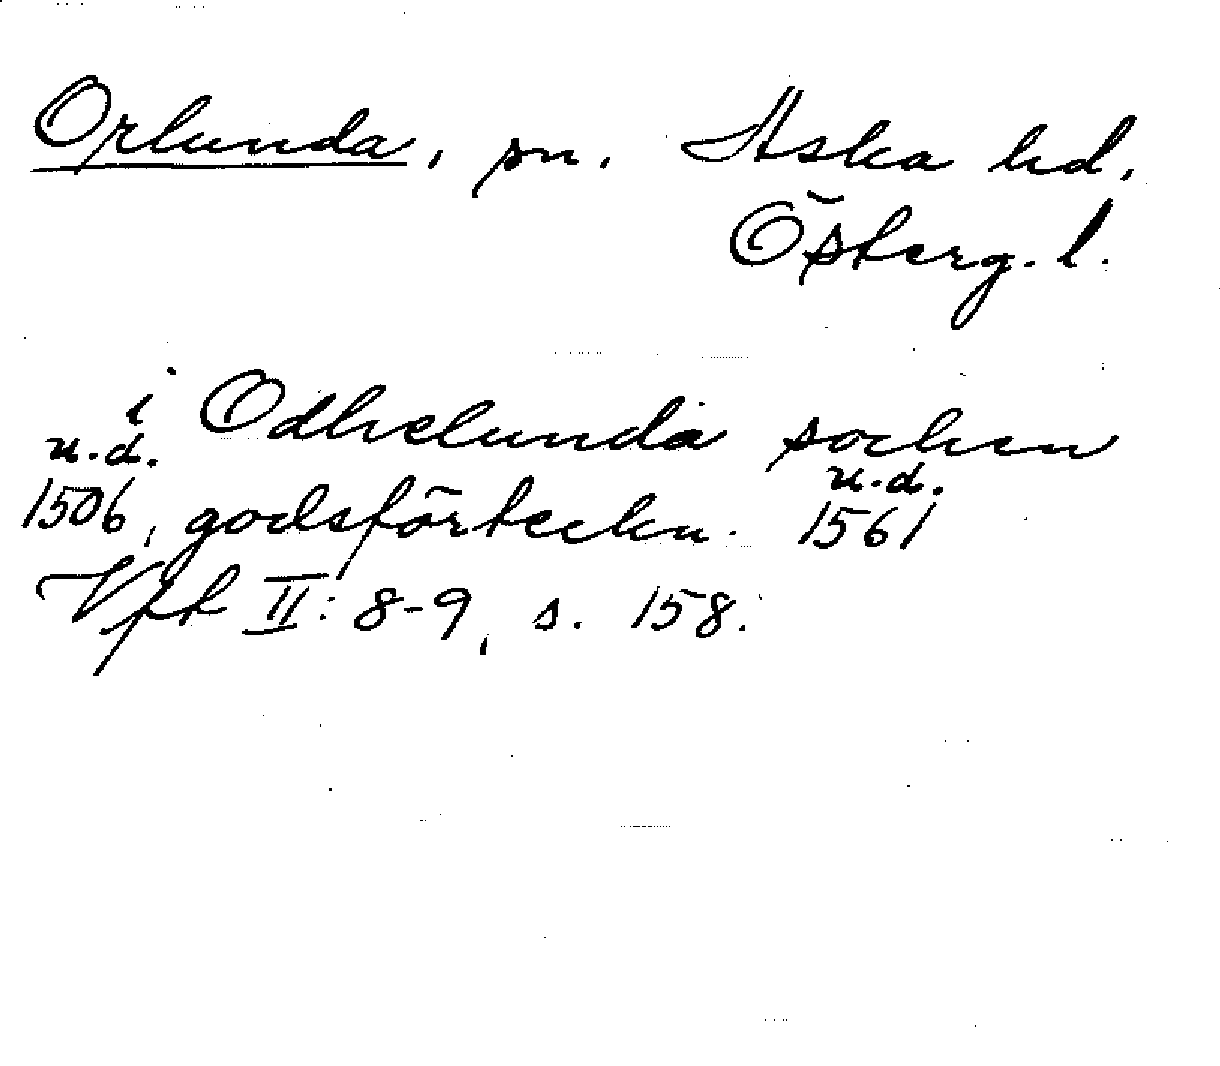 Orlunda, sn. Aska hd.
Österg. l.
i Odhelunda socken
u.d. u.d.
1506, godsförteckn. 1561
Vft II: 8-9, s. 158.